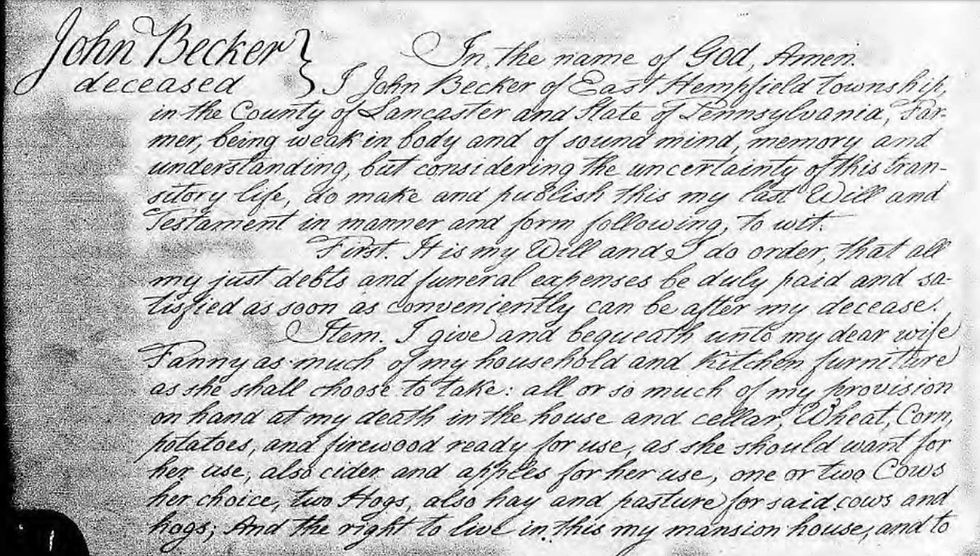 John Becker
deceased
In the name of God, Amen.
I John Becker of East Hempfield township,
in the County of Lancaster and State of Pennsylvania, Far-
mer, being weak in body and of sound mind, memory and
understanding, but considering the uncertainty of this tran-
sitory life, do make and publish this my last Will and
Testament in manner and form following, to wit:
First. It is my Will and I do order, that all
my just debts and funeral expenses be duly paid and sa-
tisfied as soon as conveniently can be after my decease.
Item. I give and bequeath unto my dear wife
Fanny as much of my household and kitchen furniture
as she shall choose to take: all or so much of my provision
on hand at my death in the house and cellar, Wheat, Corn,
potatoes, and firewood ready for use, as she should want for
her use, also cider and apples for her use, one or two Cows
her choice, two Hogs, also hay and pasture for said cows and
hogs; And the right to live in this my mansion house, and to